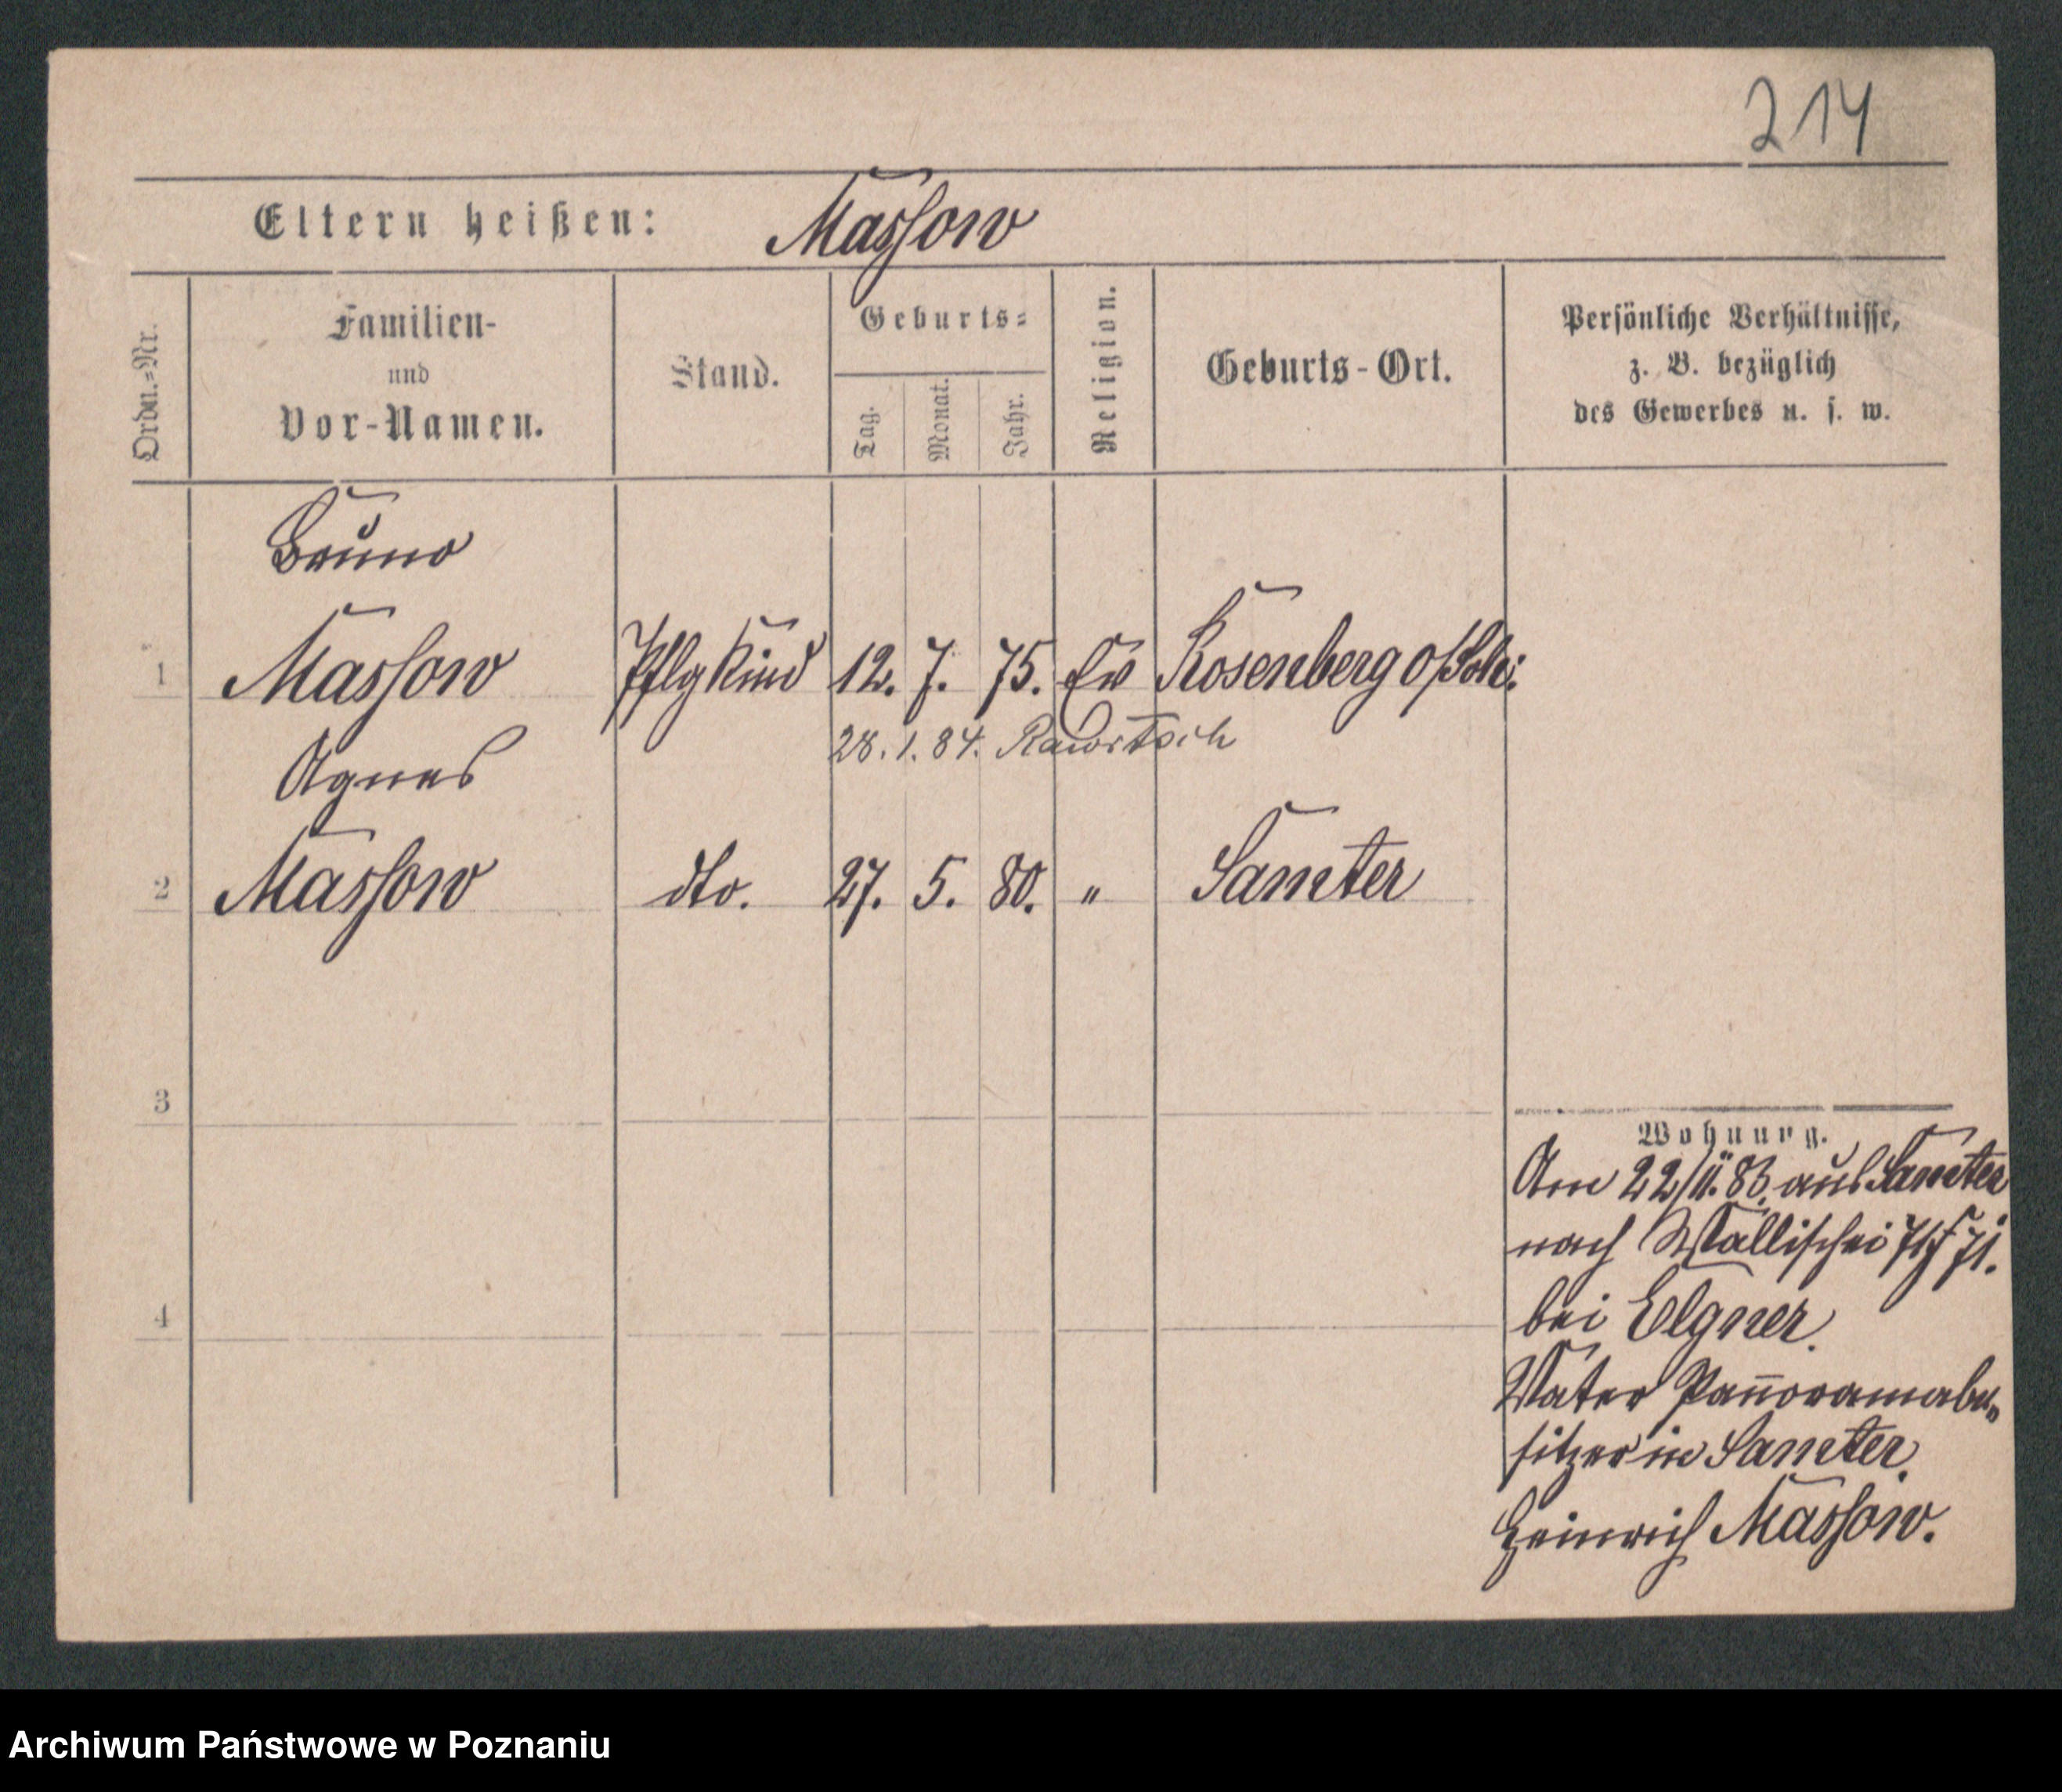 214
Eltern heißen: Massow
Ordn.-Nr.
Familien-
und
Vor-Namen.
Stand.
Geburts-
Tag.
Monat.
Jahr.
Religion.
Geburts-Ort.
Persönliche Verhältnisse,
z. B. bezüglich
des Gewerbes u. s. w.
Bruno
1 Massow Pflgkind 12. 7. 75. Ev Rosenberg
28. 1. 84. Rawitsch
Agnes
2 Massow dto. 27. 5. 80. " Samter
3
4
Wohnung.
Am 22/11. 83. aus Samter
nach Wallischei 71.
bei Elgner.
Vater Panoramabe-
sitzer in Samter.
Heinrich Massow.
Archiwum Państwowe w Poznaniu